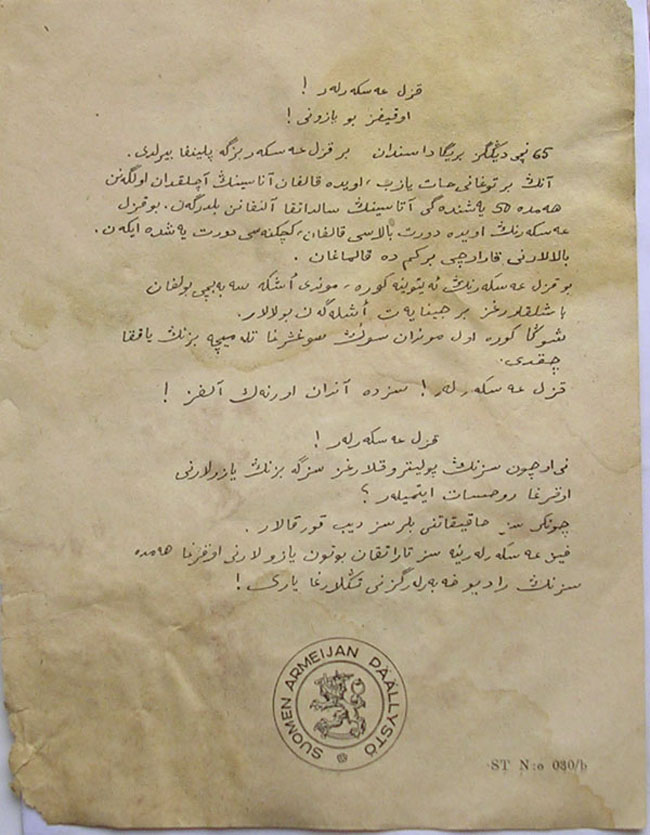 قزل عەسکەرلەر !
اوقیغز بو یازونی !
65 نچی دیڭگز بریگاداسندان بر قزل عەسکەر بزگە پلینغا بیرلدی.
آنڭ بر توغانی حات یازب، اویدە قالغان آناسینڭ آچلقدان اولگەنن
هەمدە 50 یەشندەگی آتاسینڭ سالداتقا آلنغانن بلدرگەن. بو قزل
عەسکەرنڭ اویدە دورت بالاسی قالغان، کچکنەسی دورت یەشدە ایکەن.
بالالارنی قارارچی برکم دە قالماغان .
بو قزل عەسکەرنڭ ئەیتوینە کورە، موندی أشکە سەبەبچی بولغان
باشلقلارغز بر جینایەت أشلەگەن بولالار.
شوڭا کورە اول موندان سوڭ سوغشرغا تلەمیچە بزنڭ یاققا
چقدی.
قزل عەسکەرلەر ! سزدە آندان اورنەك آلغز !
قزل عەسکەرلەر !
نی اوچون سزنڭ پولیتروقلارغز سزگە بزنڭ یازولارنی
اوقرغا روحسات ایتمیلەر ؟
چونکی سز حاقیقاتنی بلرسز دیب قورقالار .
فین عەسکەرلەرینە سز تاراتقان بوتون یازولارنی اوقرغا هەمدە
سزنڭ رادیو خەبەرلەرگزنی تڭلارغا یاری !
SUOMEN ARMEIJAN PÄÄLLYSTÖ
ST N:o 030/b